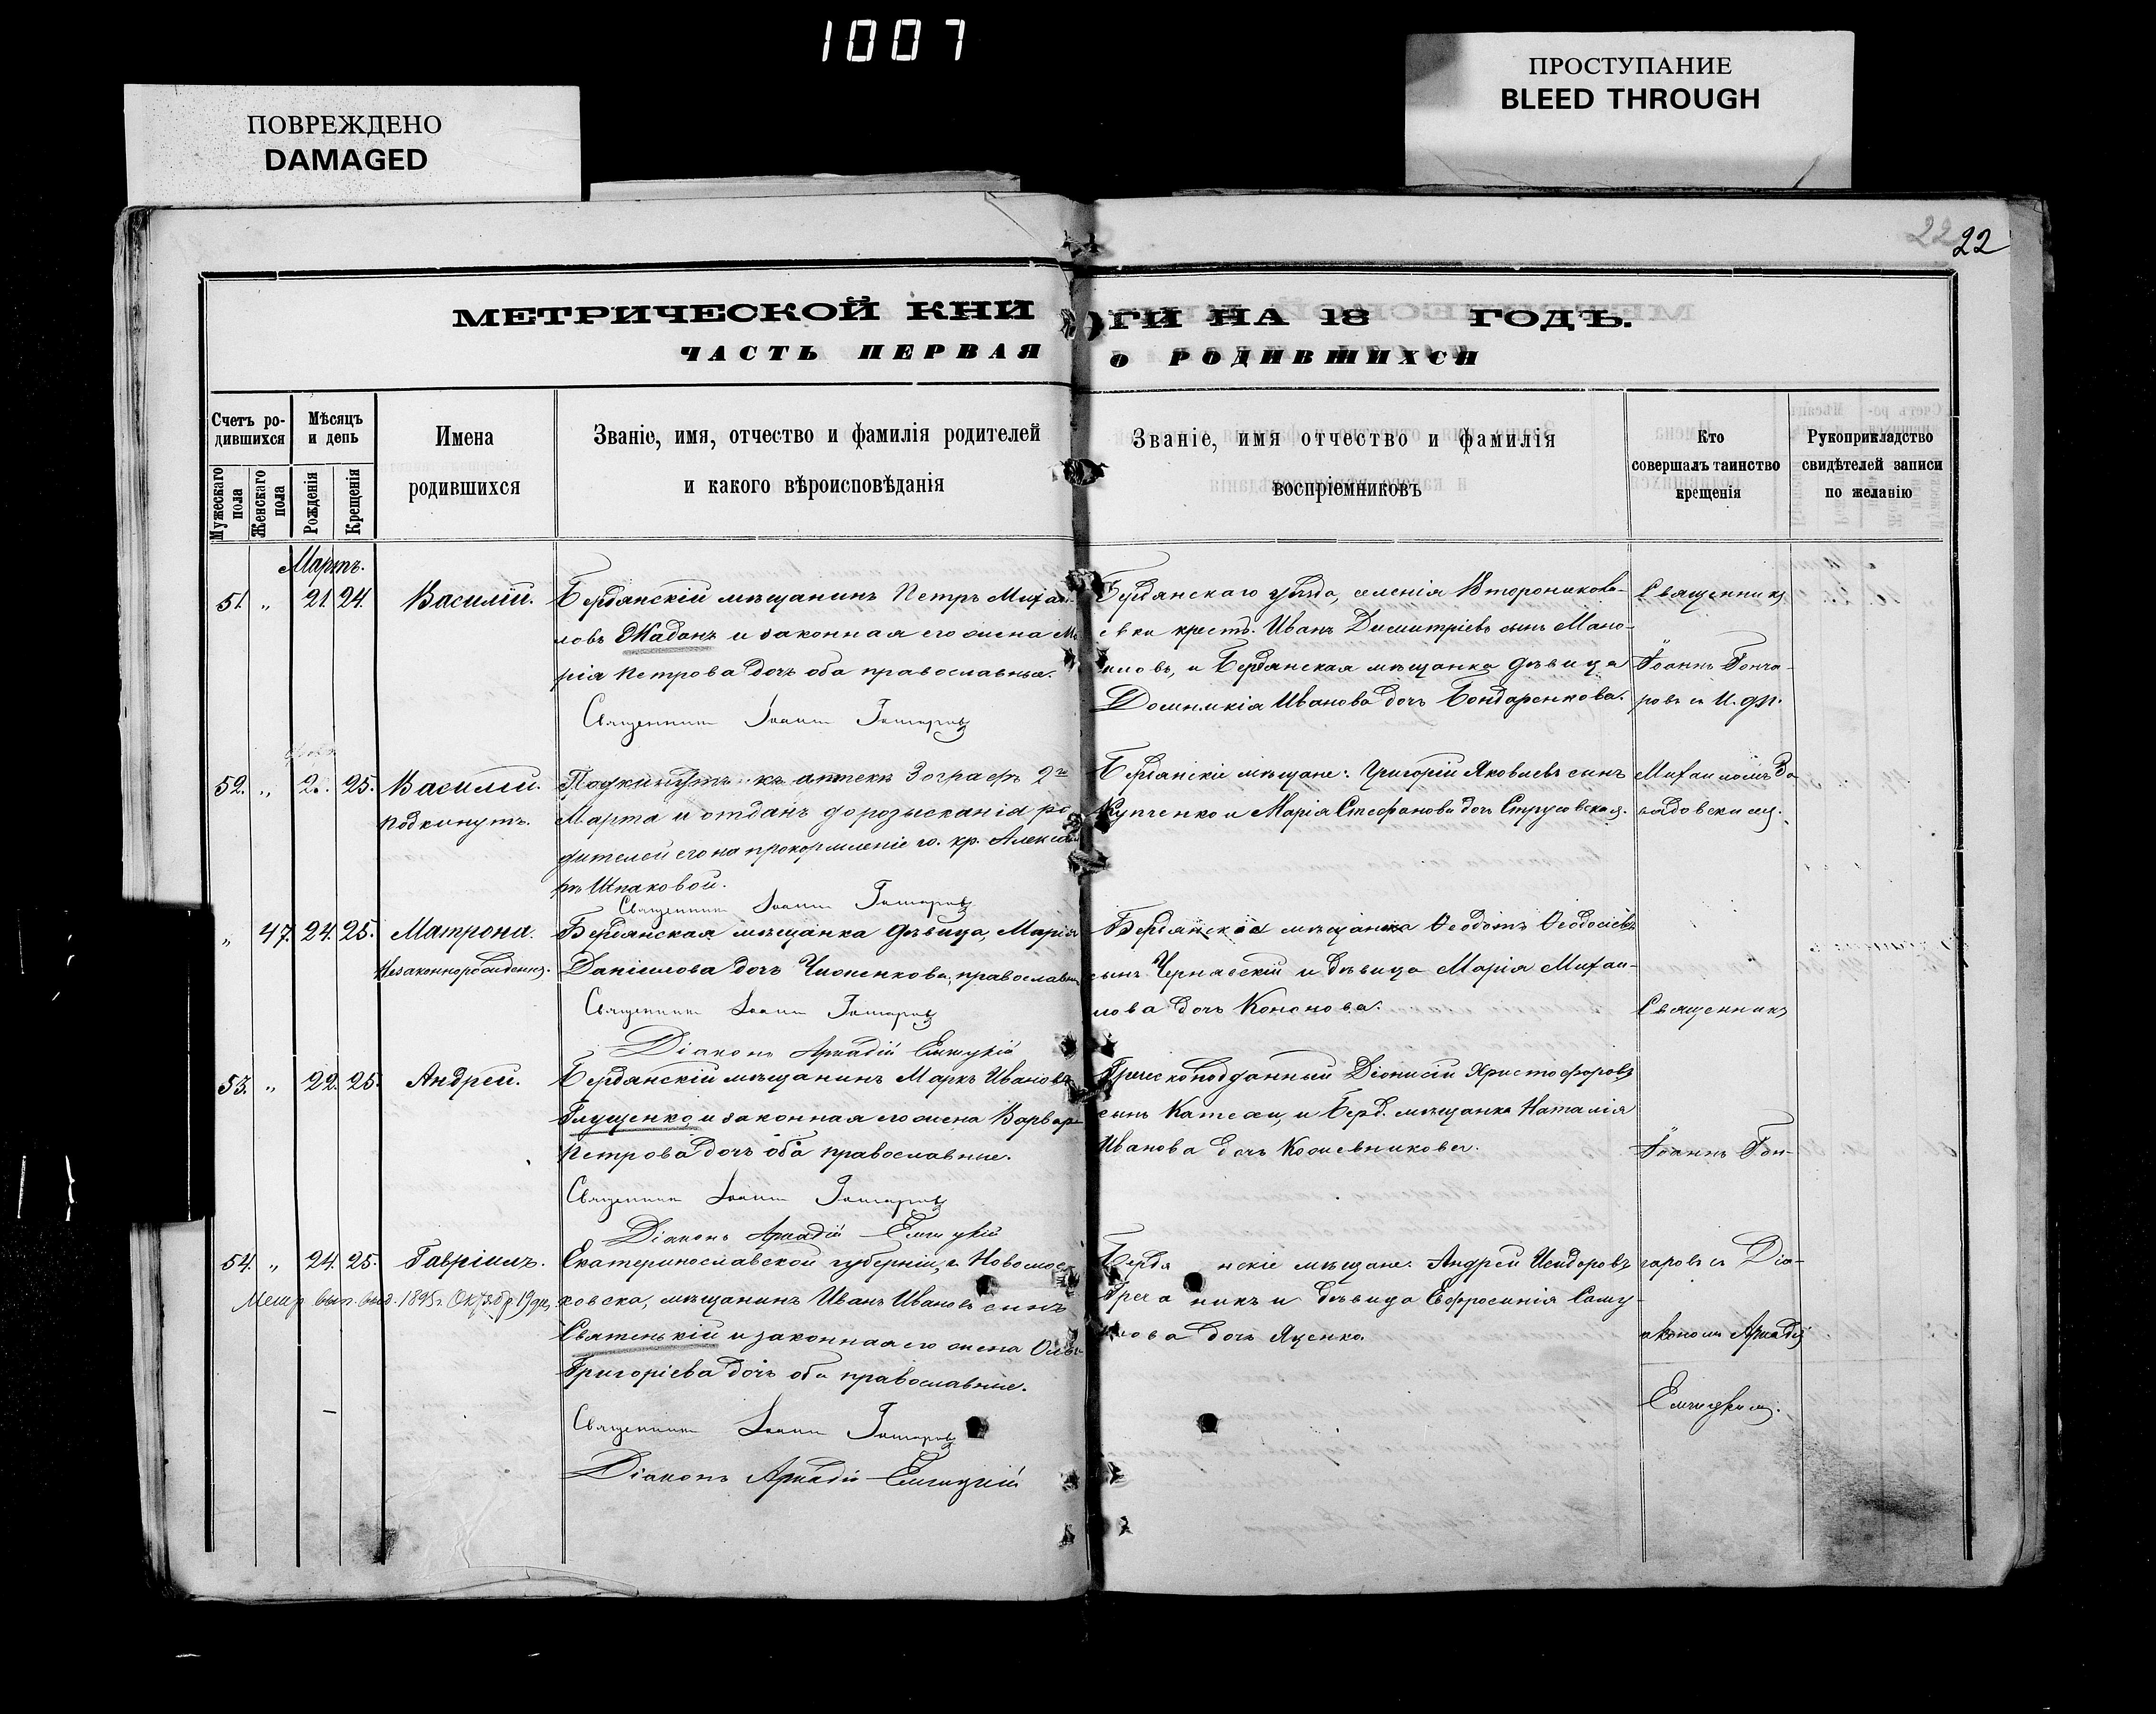 1007
ПОВРЕЖДЕНО
DAMAGED
ПРОСТУПАНИЕ
BLEED THROUGH
22 22
МЕТРИЧЕСКОЙ КНИ
ГИ НА 18 ГОДЪ.
ЧАСТЬ ПЕРВАЯ
О РОДИВШИХСЯ
Счетъ ро-
дившихся
Мужескаго
пола
Женскаго
пола
Мѣсяцъ
и день
Рожденія
Крещенія
Имена
родившихся
Званіе, имя, отчество и фамилія родителей
и какого вѣроисповѣданія
Званіе, имя отчество и фамилія
воспріемниковъ
Кто
совершалъ таинство
крещенія
Рукоприкладство
свидѣтелей записи
по желанію
Мартъ.
51. „ 21. 24. Василій.
Бердянскій мѣщанинъ Петръ Михаи-
ловъ Жаданъ и законная его жена Ма-
рія Петрова дочь оба православные.
Священникъ Іоаннъ Гончаровъ
Бердянскаго уѣзда, селенія Второникола-
евки крест. Иванъ Димитріевъ сынъ Мано-
иловъ, и Бердянская мѣщанка дѣвица
Домникія Иванова дочь Бондаренкова.
Священникъ
Іоаннъ Гонча-
ровъ и И. д. п.
52. „ 2. 25. Василій.
Подкинутъ.
Подкинутъ къ аптекѣ Зографъ 2го
Марта и отданъ до розысканія ро-
дителей его на прокормленіе го. кр. Александ-
рѣ Шпаковой.
Священникъ Іоаннъ Гончаровъ
Бердянскіе мѣщане: Григорій Яковлевъ сынъ
Купченко и Марія Стефанова дочь Струсовская.
Михаиломъ За
садовскимъ.
„ 47. 24. 25. Матрона.
Незаконнорожденная.
Бердянская мѣщанка дѣвица, Марія
Даніилова дочь, православная
Священникъ Іоаннъ Гончаровъ
Діаконъ Аркадій Емицкій
Бердянскій мѣщанинъ Ѳеодотъ Ѳеодосіевъ
сынъ Чернавскій и дѣвица Марія Михаи-
лова дочь Кононова.
Священникъ
53. „ 22. 25. Андрей.
Бердянскій мѣщанинъ Маркъ Ивановъ
Глущенко, и законная его жена Варвара
Петрова дочь оба православные.
Священникъ Іоаннъ Гончаровъ
Діаконъ Аркадій Емицкій
Греческоподданный Діонисій Христофоровъ
сынъ и Берд. мѣщанка Наталія
Иванова дочь Кожевникова.
Іоаннъ Гон-
54. „ 24. 25. Гавріилъ.
Метр. вып. выд. 1895 г. Окт.
Екатеринославской губерніи, г. Новомос-
ковска, мѣщанинъ Иванъ Ивановъ сынъ
Святенькій и законная его жена Ольга
Григоріева дочь оба православные.
Священникъ Іоаннъ Гончаровъ
Діаконъ Аркадій Емицкій
Бердянскіе мѣщане: Андрей Исидоровъ
Гречаникъ и дѣвица Евфросинія Саму-
илова дочь Яценко
чаровъ съ Діа-
акономъ Аркадій
Емицкимъ.